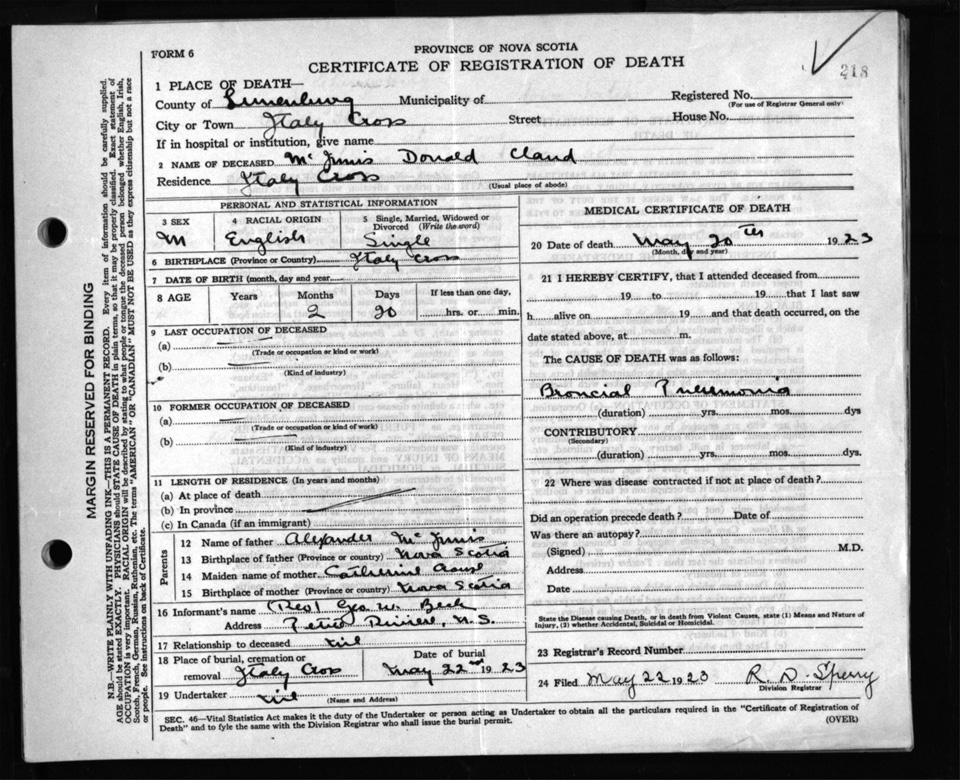 FORM 6
PROVINCE OF NOVA SCOTIA
CERTIFICATE OF REGISTRATION OF DEATH
218
1 PLACE OF DEATH—
County of Lunenburg Municipality of Registered No.
(For use of Registrar General only)
City or Town Italy Cross Street House No.
If in hospital or institution, give name
2 NAME OF DECEASED Mc Innis Donald Claud
Residence Italy Cross
(Usual place of abode)
PERSONAL AND STATISTICAL INFORMATION
3 SEX 4 RACIAL ORIGIN 5 Single, Married, Widowed or Divorced (Write the word)
M English Single
6 BIRTHPLACE (Province or Country) Italy Cross
7 DATE OF BIRTH (month, day and year)
8 AGE Years Months Days If less than one day,
2 20 hrs. or min.
9 LAST OCCUPATION OF DECEASED
(a)
(Trade or occupation or kind or work)
(b)
(Kind of industry)
10 FORMER OCCUPATION OF DECEASED
(a)
(Trade or occupation or kind of work)
(b)
(Kind of industry)
11 LENGTH OF RESIDENCE (In years and months)
(a) At place of death
(b) In province
(c) In Canada (if an immigrant)
Parents
12 Name of father Alexander Mc Innis
13 Birthplace of father (Province or country) Nova Scotia
14 Maiden name of mother Catherine
15 Birthplace of mother (Province or country) Nova Scotia
16 Informant's name (Rev) Geo. W. Beck
Address Petite Riviere, N.S.
17 Relationship to deceased nil
18 Place of burial, cremation or removal Italy Cross Date of burial May 22nd 1923
19 Undertaker nil
(Name and Address)
MEDICAL CERTIFICATE OF DEATH
20 Date of death May 20th 1923
(Month, day and year)
21 I HEREBY CERTIFY, that I attended deceased from
19 to 19 that I last saw
h alive on 19 and that death occurred, on the
date stated above, at m.
The CAUSE OF DEATH was as follows:
Broncial Pneumonia
(duration) yrs. mos. dys
CONTRIBUTORY
(Secondary)
(duration) yrs. mos. dys.
22 Where was disease contracted if not at place of death?
Did an operation precede death? Date of
Was there an autopsy?
(Signed) M.D.
Address
Date
State the Disease causing Death, or in death from Violent Causes, state (1) Means and Nature of
Injury, (2) whether Accidental, Suicidal or Homicidal.
23 Registrar's Record Number
24 Filed May 22 1923 R. D. Sperry
Division Registrar
SEC. 46—Vital Statistics Act makes it the duty of the Undertaker or person acting as Undertaker to obtain all the particulars required in the "Certificate of Registration of
Death" and to fyle the same with the Division Registrar who shall issue the burial permit.
(OVER)
MARGIN RESERVED FOR BINDING
N.B.—WRITE PLAINLY WITH UNFADING INK—THIS IS A PERMANENT RECORD. Every item of information should be carefully supplied.
AGE should be stated EXACTLY. PHYSICIANS should STATE CAUSE OF DEATH in plain terms, so that it may be properly classified. Exact statement of
OCCUPATION is very important. RACIAL ORIGIN will be described by stating to what people or tongue the deceased person belonged whether English, Irish,
Scotch, French, German, Russian, Ruthenian, etc. The terms "AMERICAN" OR "CANADIAN" MUST NOT BE USED as they express citizenship but not a race
or people. See instructions on back of Certificate.